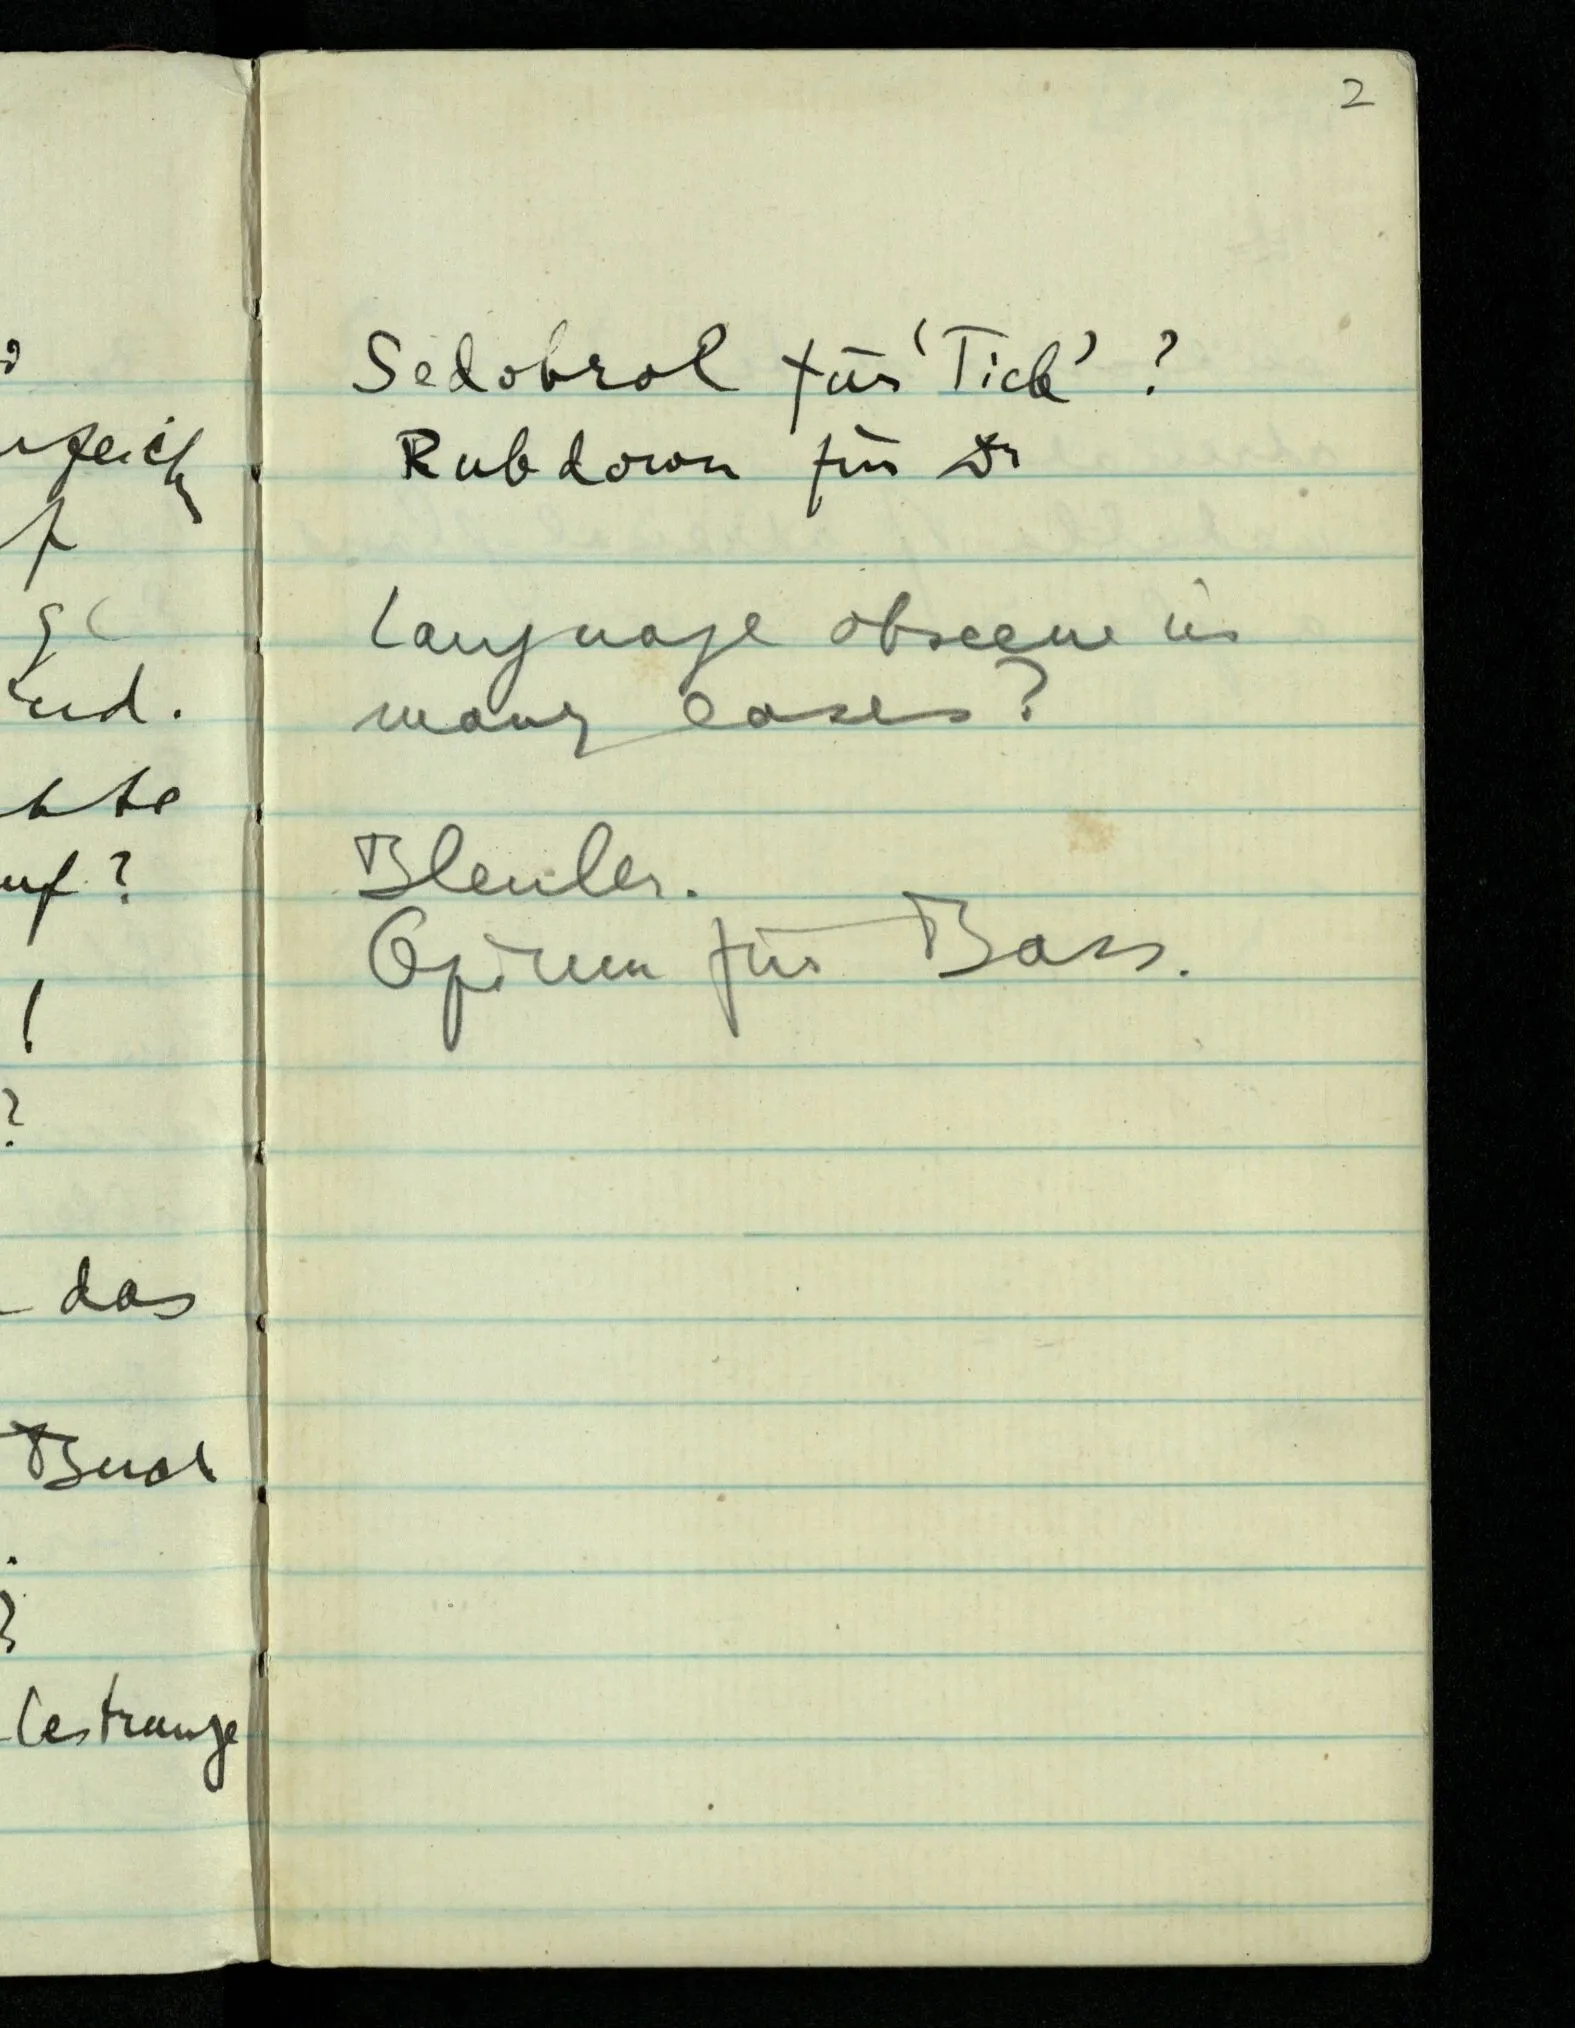 2
Sedobrol für 'Tick' ?
Rubdown für Dr
Language obscene in
many cases?
Bleuler.
Opium für Bass.
auf ?
!
?
das
Buch
.
?
Lestrange